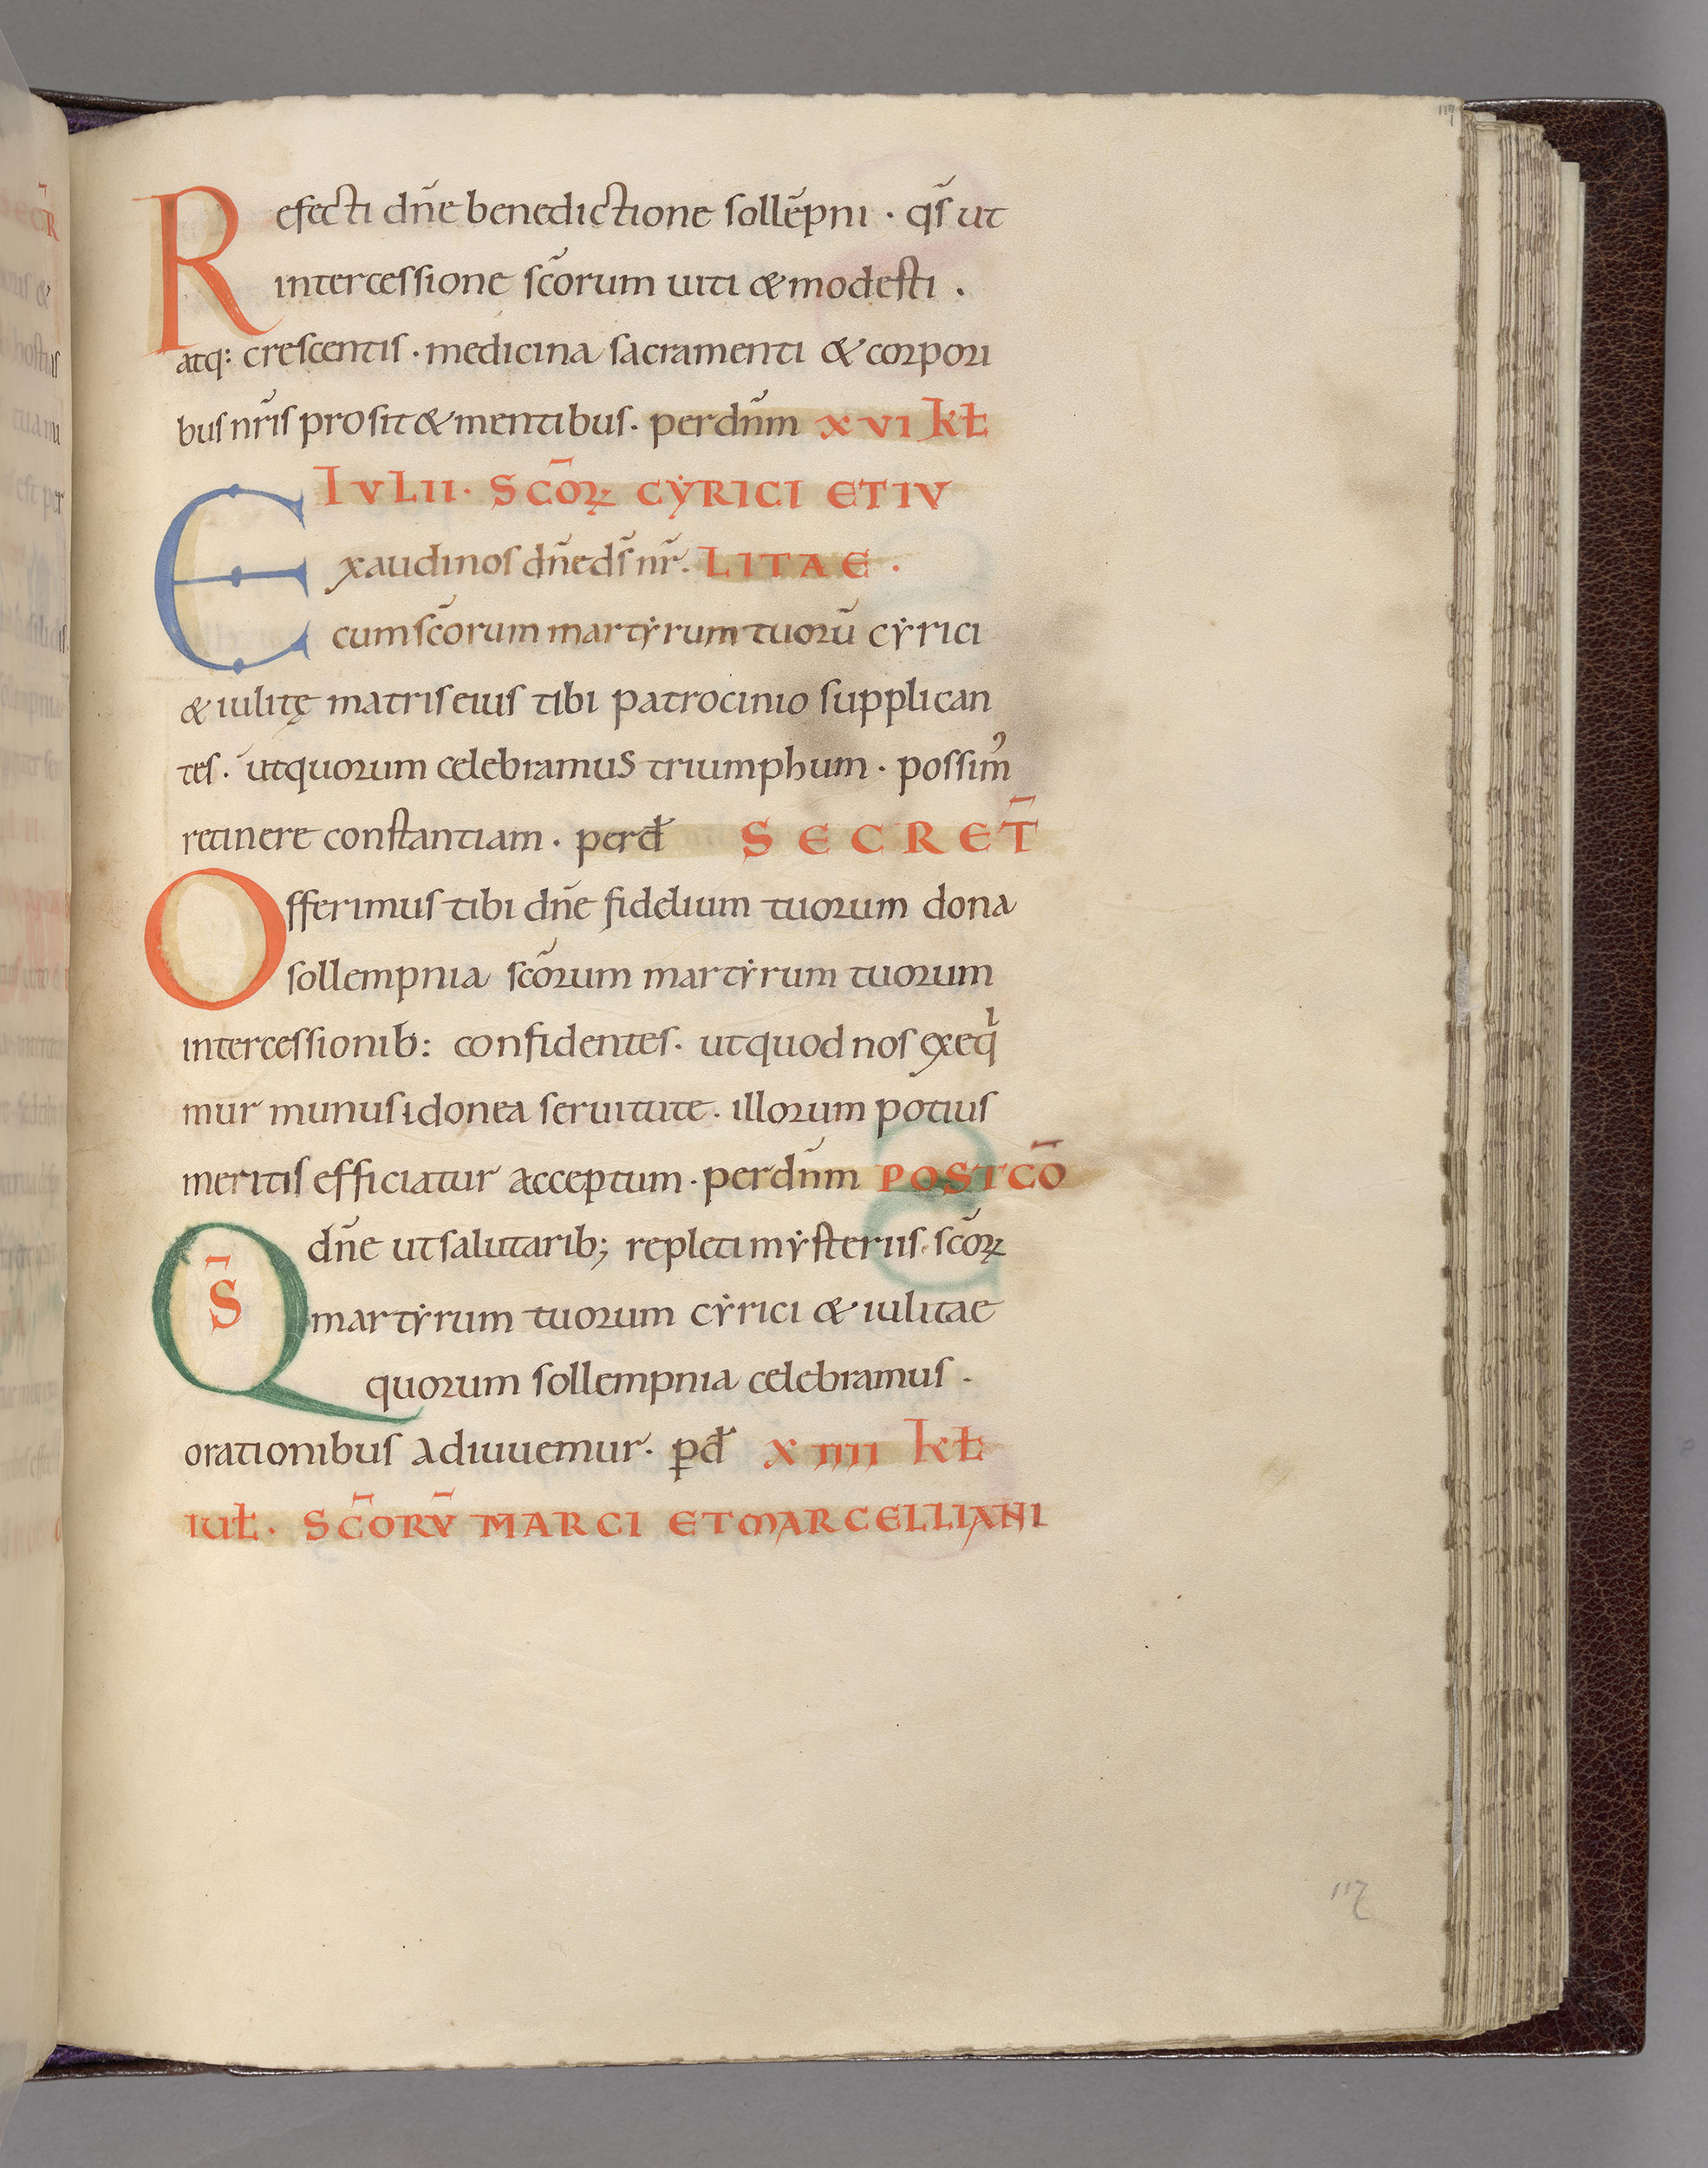 117
Refecti dn̄e benedictione sollēpni · qs̄ ut
intercessione sc̄orum uiti & modesti .
atq: crescentis · medicina sacramenti & corpori
bus nr̄is prosit & mentibus · per dn̄m XVI kƚ
IVLII · SC̄OꝜ CẎRICI ET IV
Exaudi nos dn̄e ds̄ nr̄ . LITAE .
cum sc̄orum martẏrum tuorū cẏrici
& iulitę matris eius tibi patrocinio supplican
tes . ut quorum celebramus triumphum · possimꝰ
retinere constantiam · per d̄ SECRET̄
Offerimus tibi dn̄e fidelium tuorum dona
sollempnia sc̄orum martẏrum tuorum
intercessionib: confidentes · ut quod nos exeqͥ
mur munus idonea seruitute · illorum potius
meritis efficiatur acceptum · per dn̄m POSTCŌ
QS̄ dn̄e ut salutarib; repleti mẏsteriis · sc̄oꝝ
martẏrum tuorum cẏrici & iulitae
quorum sollempnia celebramus .
orationibus adiuuemur · ꝑ d̄ XIIII kƚ
iuƚ . SC̄ORV̄ MARCI ET MARCELLIANI
117